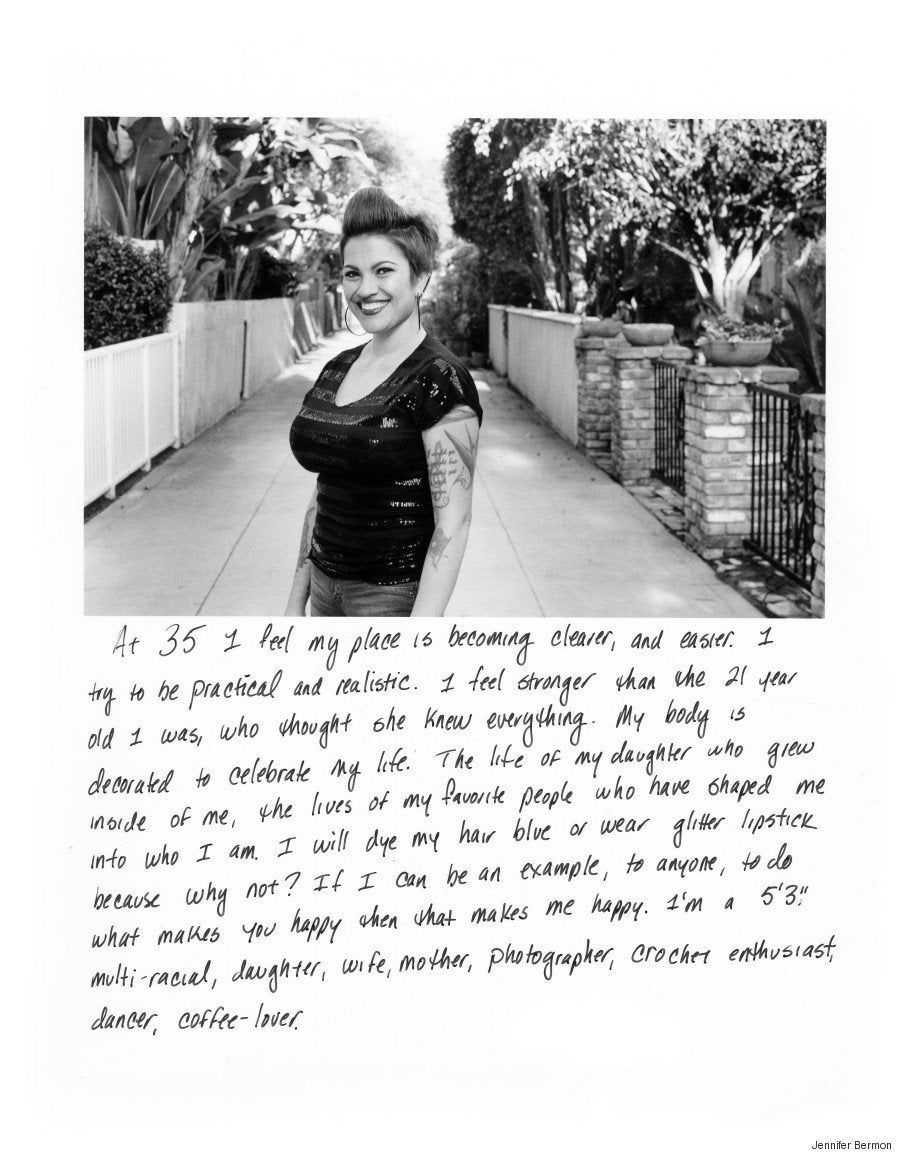 At 35 I feel my place is becoming clearer, and easier. I
try to be practical and realistic. I feel stronger than the 21 year
old I was, who thought she knew everything. My body is
decorated to celebrate my life. The life of my daughter who grew
inside of me, the lives of my favorite people who have shaped me
into who I am. I will dye my hair blue or wear glitter lipstick
because why not? If I can be an example, to anyone, to do
what makes you happy then that makes me happy. I'm a 5'3",
multi-racial, daughter, wife, mother, photographer, crochet enthusiast,
dancer, coffee-lover.
Jennifer Bermon